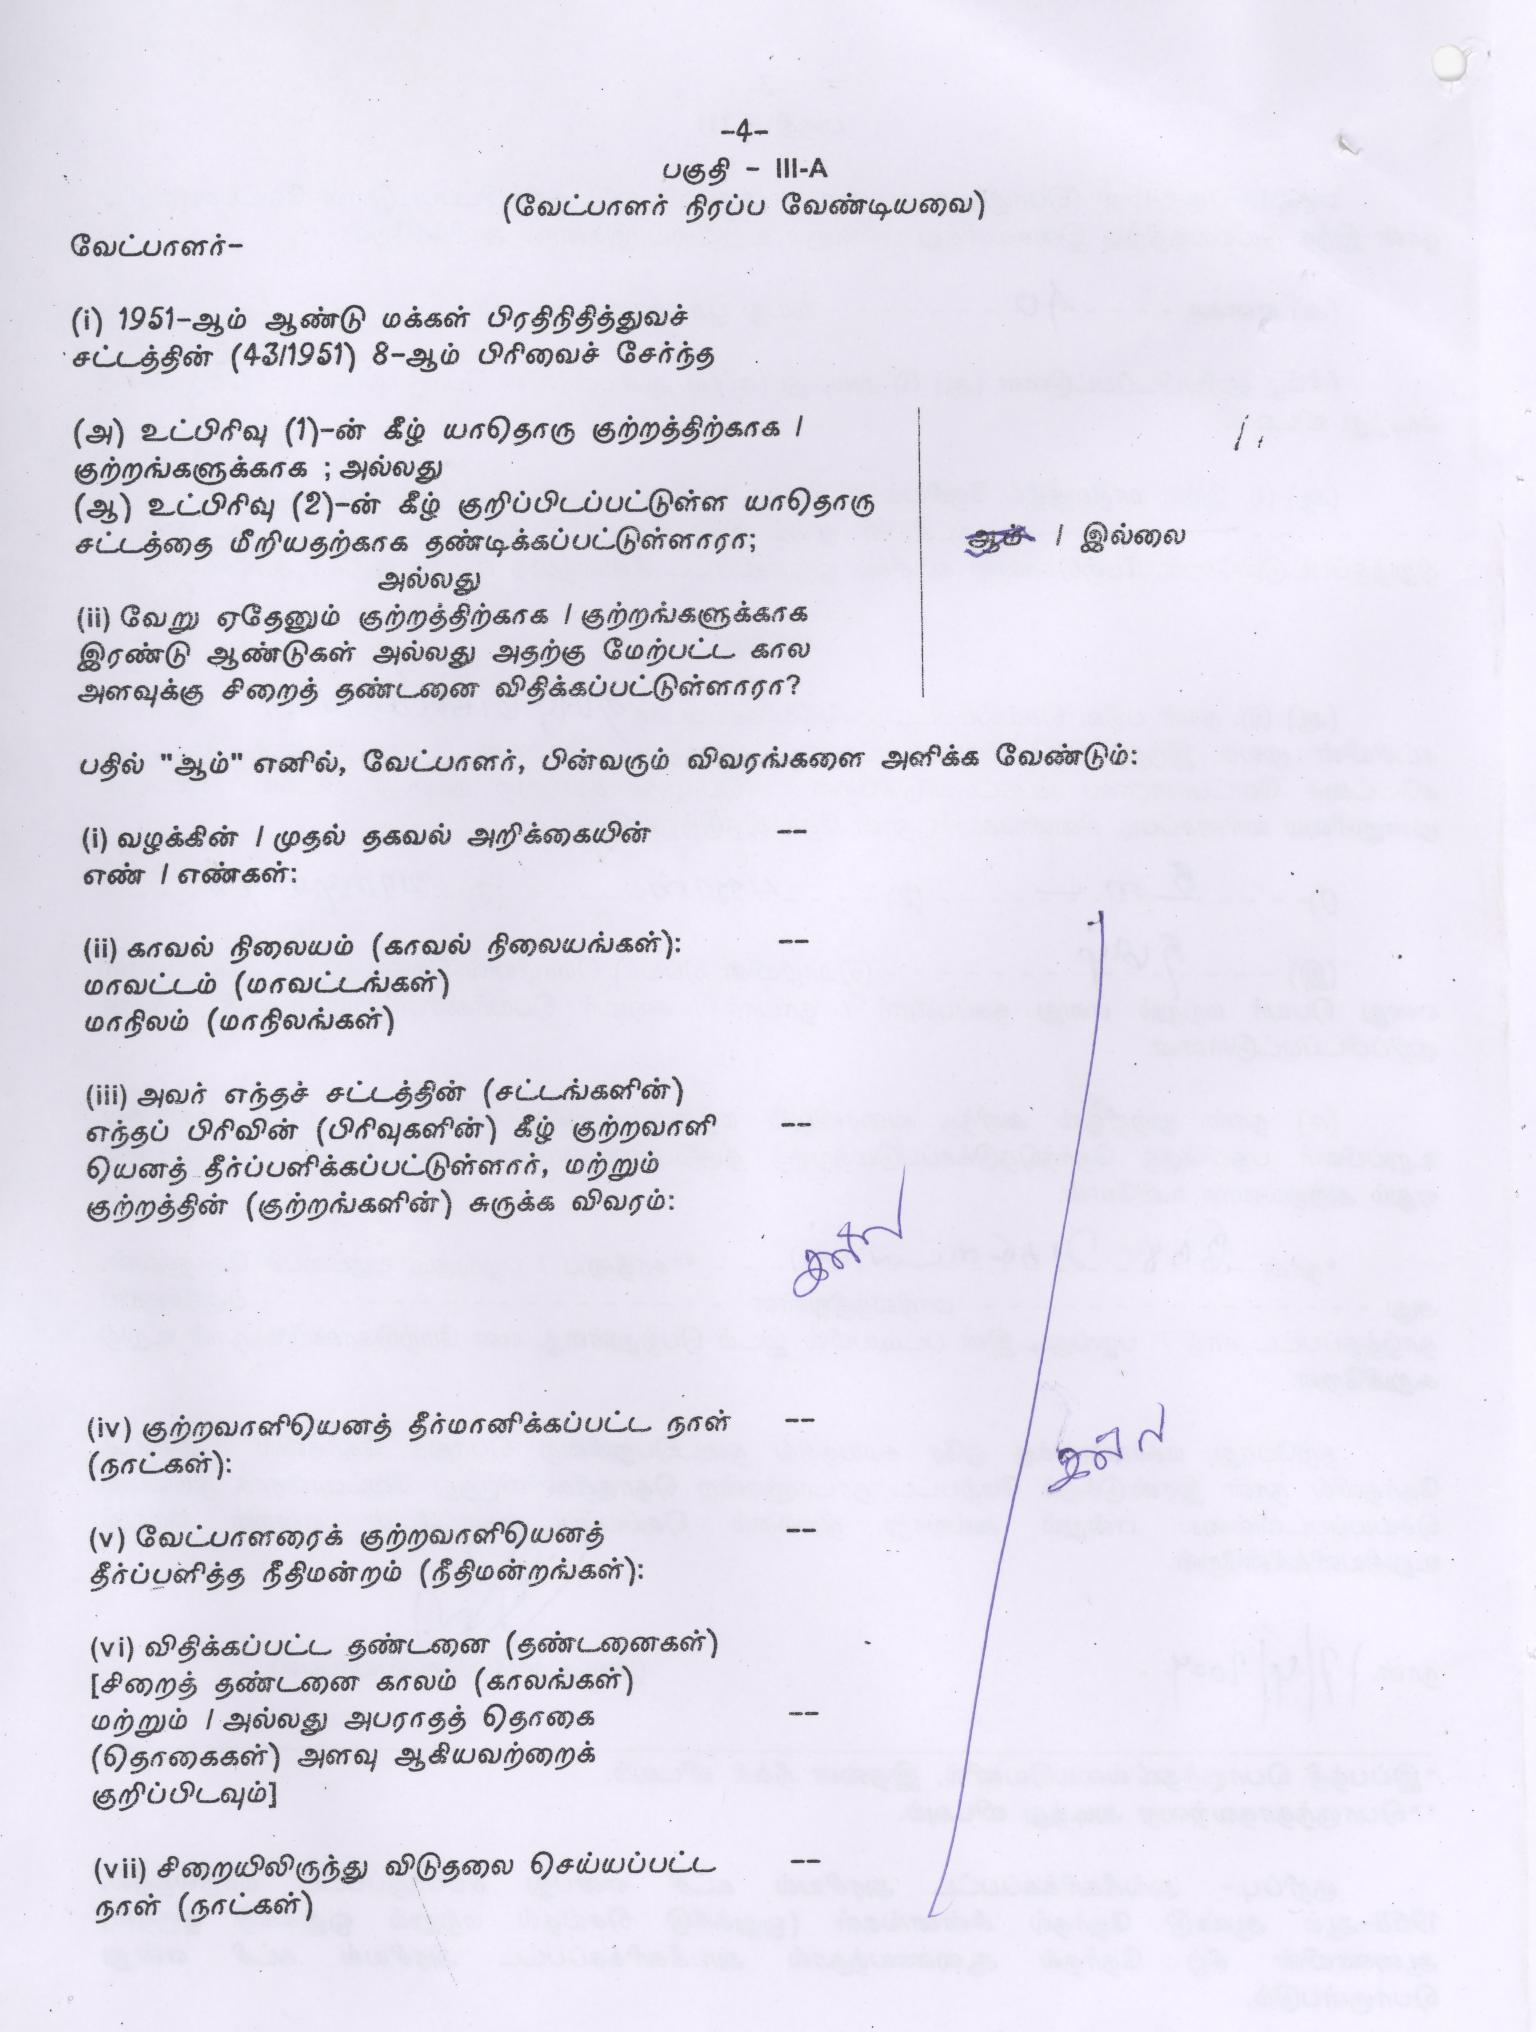 -4-
பகுதி - III-A
(வேட்பாளர் நிரப்ப வேண்டியவை)
வேட்பாளர்-
(i) 1951-ஆம் ஆண்டு மக்கள் பிரதிநிதித்துவச்
சட்டத்தின் (43/1951) 8-ஆம் பிரிவைச் சேர்ந்த
(அ) உட்பிரிவு (1)-ன் கீழ் யாதொரு குற்றத்திற்காக /
குற்றங்களுக்காக ; அல்லது
(ஆ) உட்பிரிவு (2)-ன் கீழ் குறிப்பிடப்பட்டுள்ள யாதொரு
சட்டத்தை மீறியதற்காக தண்டிக்கப்பட்டுள்ளாரா; ஆம் / இல்லை
அல்லது
(ii) வேறு ஏதேனும் குற்றத்திற்காக / குற்றங்களுக்காக
இரண்டு ஆண்டுகள் அல்லது அதற்கு மேற்பட்ட கால
அளவுக்கு சிறைத் தண்டனை விதிக்கப்பட்டுள்ளாரா?
பதில் "ஆம்" எனில், வேட்பாளர், பின்வரும் விவரங்களை அளிக்க வேண்டும்:
(i) வழக்கின் / முதல் தகவல் அறிக்கையின் --
எண் / எண்கள்:
(ii) காவல் நிலையம் (காவல் நிலையங்கள்): --
மாவட்டம் (மாவட்டங்கள்)
மாநிலம் (மாநிலங்கள்)
(iii) அவர் எந்தச் சட்டத்தின் (சட்டங்களின்)
எந்தப் பிரிவின் (பிரிவுகளின்) கீழ் குற்றவாளி --
யெனத் தீர்ப்பளிக்கப்பட்டுள்ளார், மற்றும்
குற்றத்தின் (குற்றங்களின்) சுருக்க விவரம்:
(iv) குற்றவாளியெனத் தீர்மானிக்கப்பட்ட நாள் --
(நாட்கள்):
(v) வேட்பாளரைக் குற்றவாளியெனத் --
தீர்ப்பளித்த நீதிமன்றம் (நீதிமன்றங்கள்):
(vi) விதிக்கப்பட்ட தண்டனை (தண்டனைகள்)
[சிறைத் தண்டனை காலம் (காலங்கள்)
மற்றும் / அல்லது அபராதத் தொகை --
(தொகைகள்) அளவு ஆகியவற்றைக்
குறிப்பிடவும்]
(vii) சிறையிலிருந்து விடுதலை செய்யப்பட்ட --
நாள் (நாட்கள்)